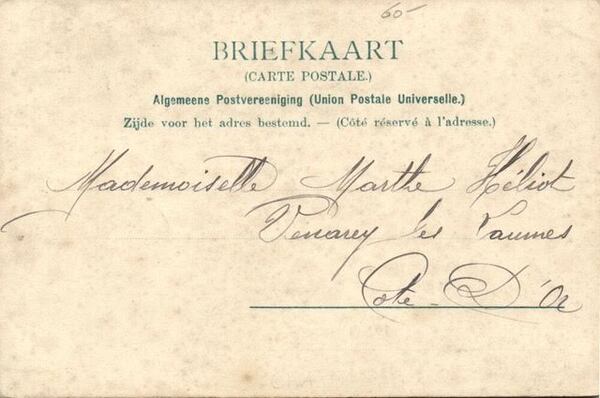 60-
BRIEFKAART
(CARTE POSTALE.)
Algemeene Postvereeniging (Union Postale Universelle.)
Zijde voor het adres bestemd. — (Côté réservé à l'adresse.)
Mademoiselle Marthe Héliot
Venarey les Laumes
Côte-D'Or